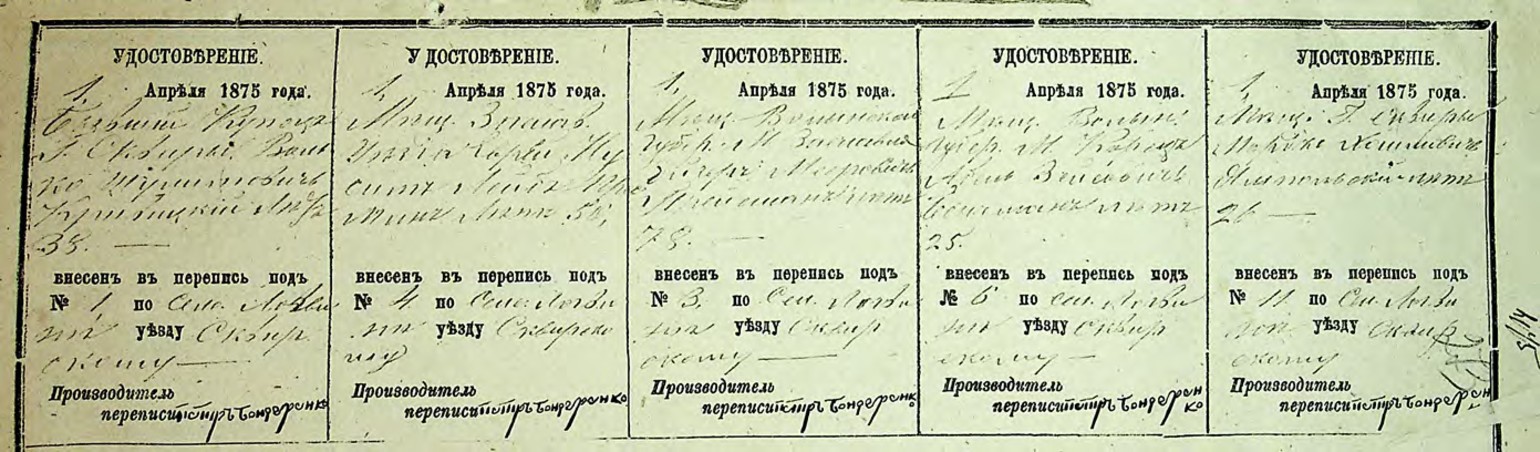 УДОСТОВѢРЕНІЕ.
1. Апрѣля 1875 года.
Бывшій Купецъ
Г. Сквиры Воль
ко
38. —
внесенъ въ перепись подъ
№ 1 по Сел. Логви
на уѣзду Сквир
скому —
Производитель
переписи Петръ Бондаренко
УДОСТОВѢРЕНІЕ.
1. Апрѣля 1875 года.
Мѣщ.
Лейба
Лѣтъ 56,
внесенъ въ перепись подъ
№ 4 по Сел. Логви
на уѣзду Сквирско
му
Производитель
переписи Петръ Бондаренко
УДОСТОВѢРЕНІЕ.
1. Апрѣля 1875 года.
Мѣщ. Волынской
Губер. М.
Мееровичъ
лѣтъ
78. —
внесенъ въ перепись подъ
№ 3. по Сел. Логви
на уѣзду Сквир
скому —
Производитель
переписи Петръ Бондаренко
УДОСТОВѢРЕНІЕ.
1 Апрѣля 1875 года.
Мѣщ. Волын.
Губер. М.
лѣтъ
25.
внесенъ въ перепись подъ
№ 6 по Сел. Логви
на уѣзду Сквир
скому —
Производитель
переписи Петръ Бондаренко
УДОСТОВѢРЕНІЕ.
1, Апрѣля 1875 года.
Мѣщ. Г. Сквиры
Ямпольскій лѣтъ
26 —
внесенъ въ перепись подъ
№ 11. по Сел. Логви
на уѣзду Сквир
скому
Производитель
переписи Петръ Бондарен